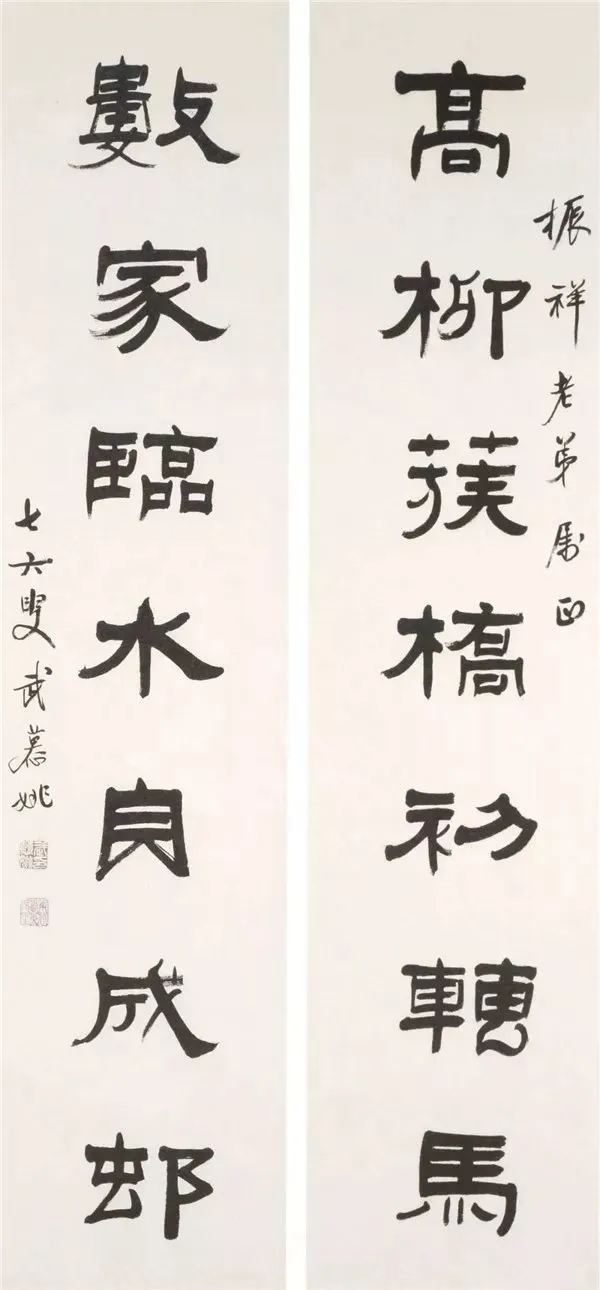 振祥老弟属正
髙柳蔟橋初轉馬
數家臨水自成邨
七六叟武慕姚